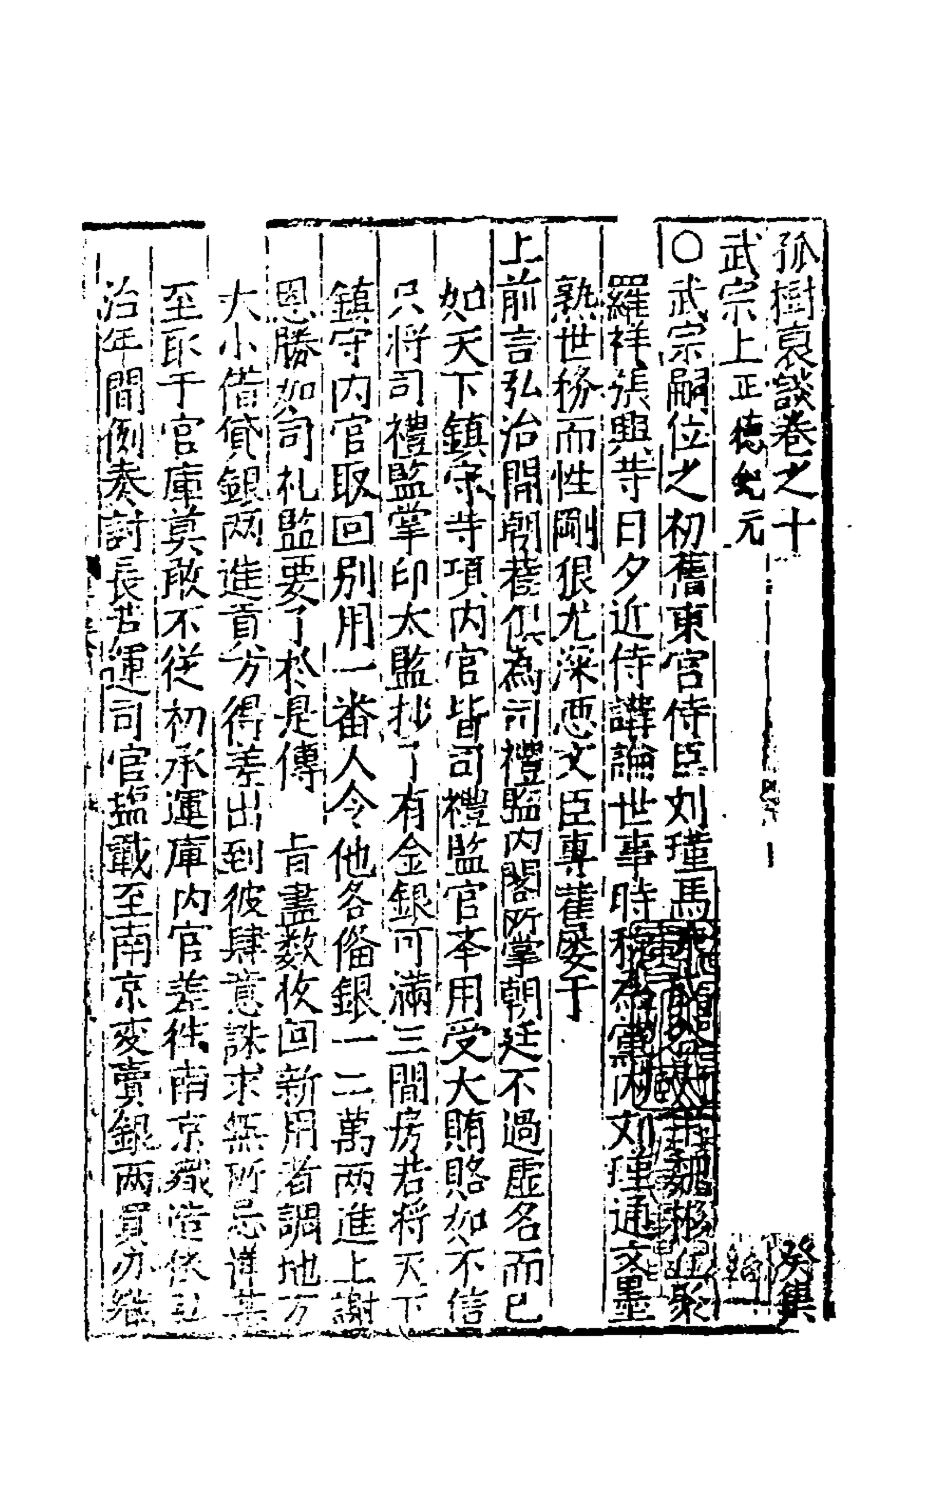 孤樹裒談卷之十 癸集
武宗上正德紀元
○武宗嗣位之初舊東宮侍臣刘瑾馬永成谷大用魏彬丘聚
羅祥張興等日夕近侍講論世事時稱為黨内刘瑾通文墨
熟世務而性剛狠尤深惡文臣專權屡于
上前言弘治間朝權俱為司禮監内閣所掌朝廷不過虛名而已
如天下鎮守等項内官皆司禮監官奉用受大賄賂如不信
只将司禮監掌印太監抄了有金銀可滿三間房若将天下
鎮守内官取回别用一番人令他各俻銀一二萬两進上謝
恩勝如司礼監要了於是傳 旨盡數收回新用者調地方
大小借貸銀两進貢方得差出到彼肆意誅求無所忌憚甚
至取于官庫莫敢不從初承運庫内官差往南京織造依弘
治年間例奏討長芦運司官塩載至南京变賣銀两買办継